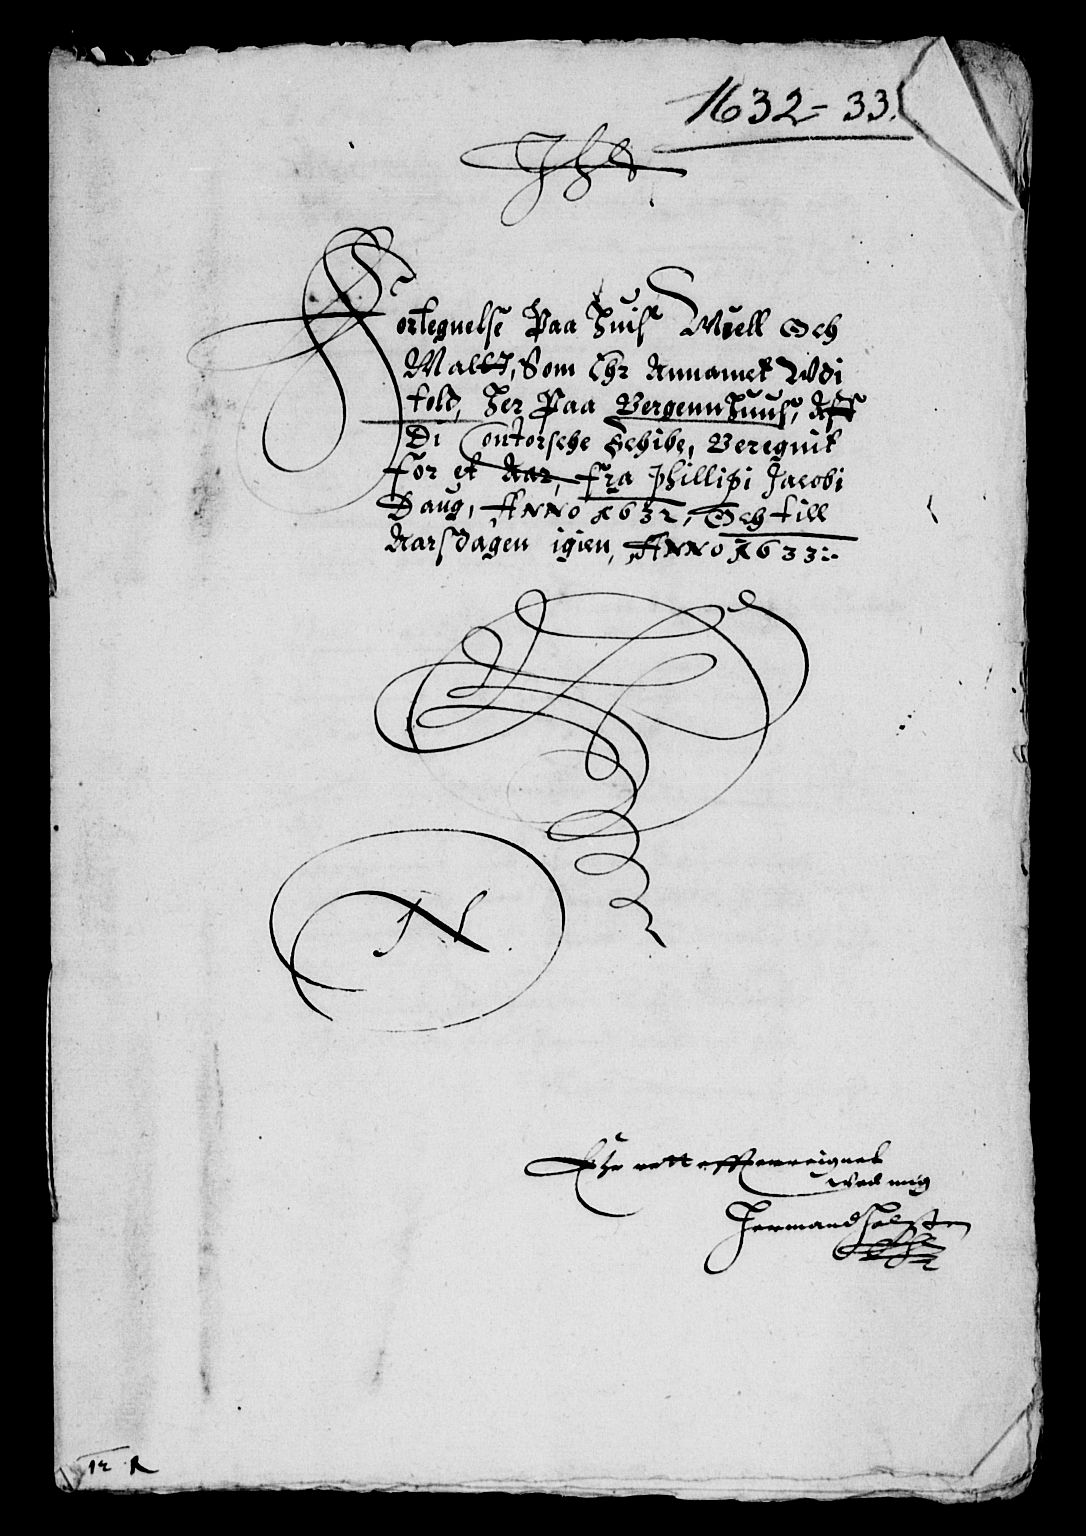 1632 - 33.
Jhs
Fortegnelse Paa huis Miell Och
Mallt, Som Ehr Annamet Udi
told, her Paa Bergennhuus, Aff
Di Contorsche Schibe, Beregnit
for et Aar, fra Phillipi Jacobi
Daug, Anno 1632, Och till
Aarsdagen igien, Anno 1633:
N
Ehr rett offuerreignet
wed mig
Herman Holsten
12 R